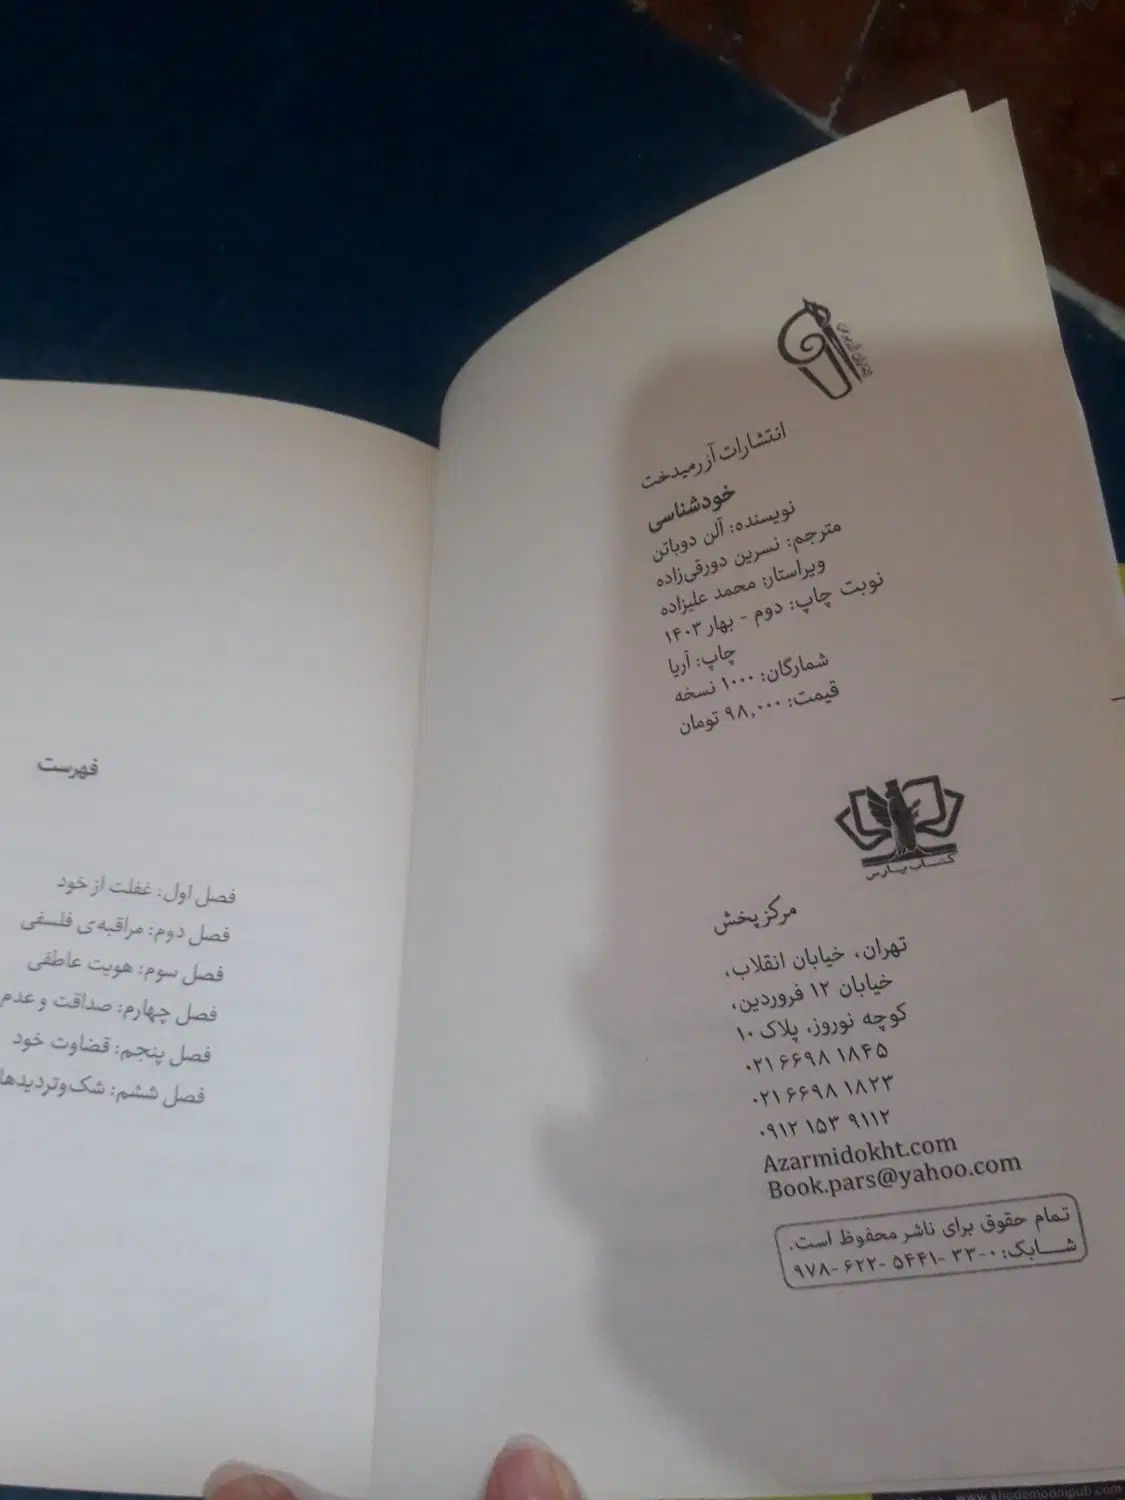 انتشارات آزرمیدخت
خودشناسی
نویسنده: آلن دوباتن
مترجم: نسرین دورقی‌زاده
ویراستار: محمد علیزاده
نوبت چاپ: دوم - بهار ۱۴۰۳
چاپ: آریا
شمارگان: ۱۰۰۰ نسخه
قیمت: ۹۸,۰۰۰ تومان
کتاب پارس
مرکز پخش
تهران، خیابان انقلاب،
خیابان ۱۲ فروردین،
کوچه نوروز، پلاک ۱۰
۰۲۱ ۶۶۹۸ ۱۸۴۵
۰۲۱ ۶۶۹۸ ۱۸۲۳
۰۹۱۲ ۱۵۳ ۹۱۱۲
Azarmidokht.com
Book.pars@yahoo.com
تمام حقوق برای ناشر محفوظ است.
شابک: ۰-۳۳-۵۴۴۱-۶۲۲-۹۷۸
فهرست
فصل اول: غفلت از خود
فصل دوم: مراقبه‌ی فلسفی
فصل سوم: هویت عاطفی
فصل چهارم: صداقت و عدم
فصل پنجم: قضاوت خود
فصل ششم: شک‌وتردیدها
www.khodemoonipub.com